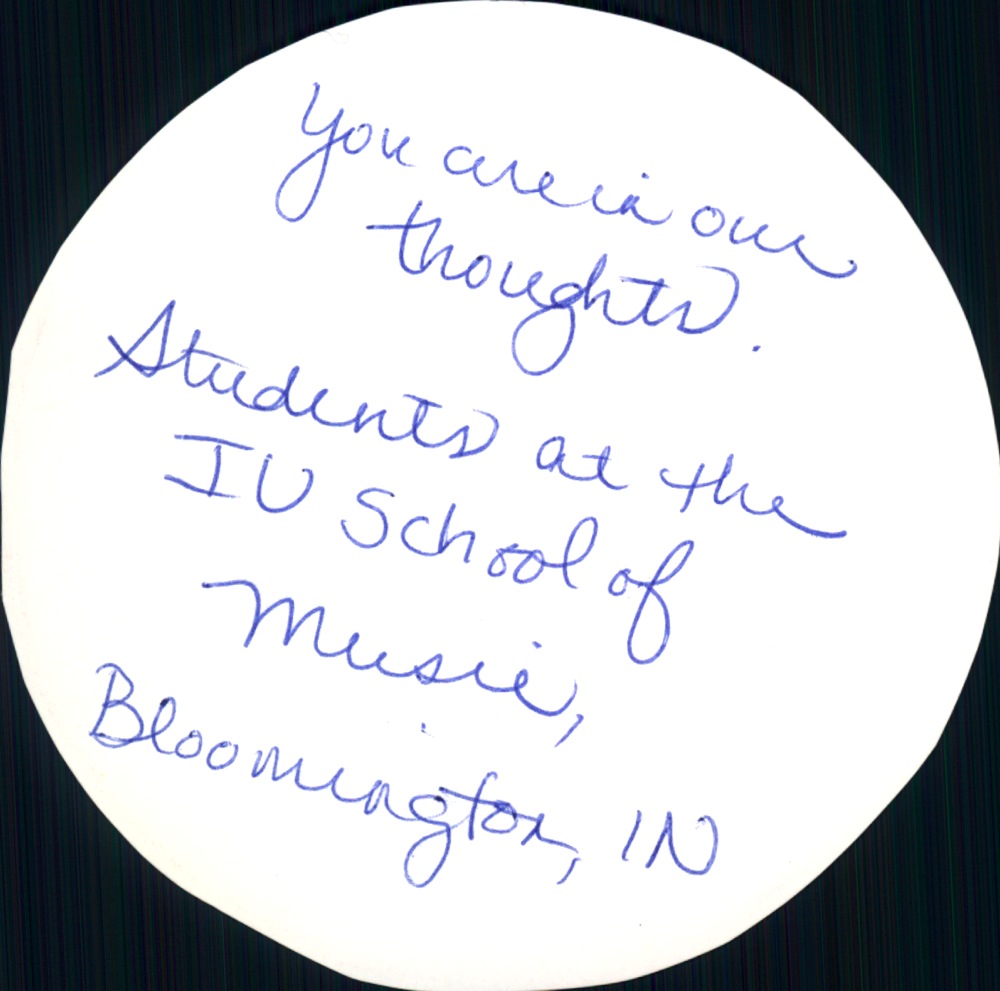 You are in our
thoughts.
Students at the
IU School of
Music,
Bloomington, IN